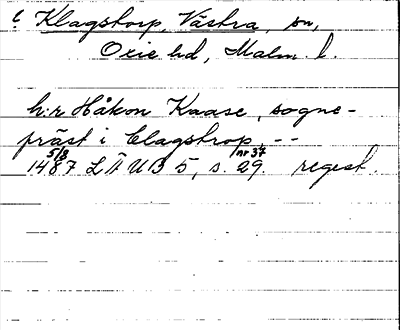 t Klagstorp, Västra, sn,
Oxie hd, Malm. l.
h:r Håkon Kaase, sogne-
präst i Clagstrop, --
5/8 nr 37
1487 LÄUB 5, s. 29. regest.